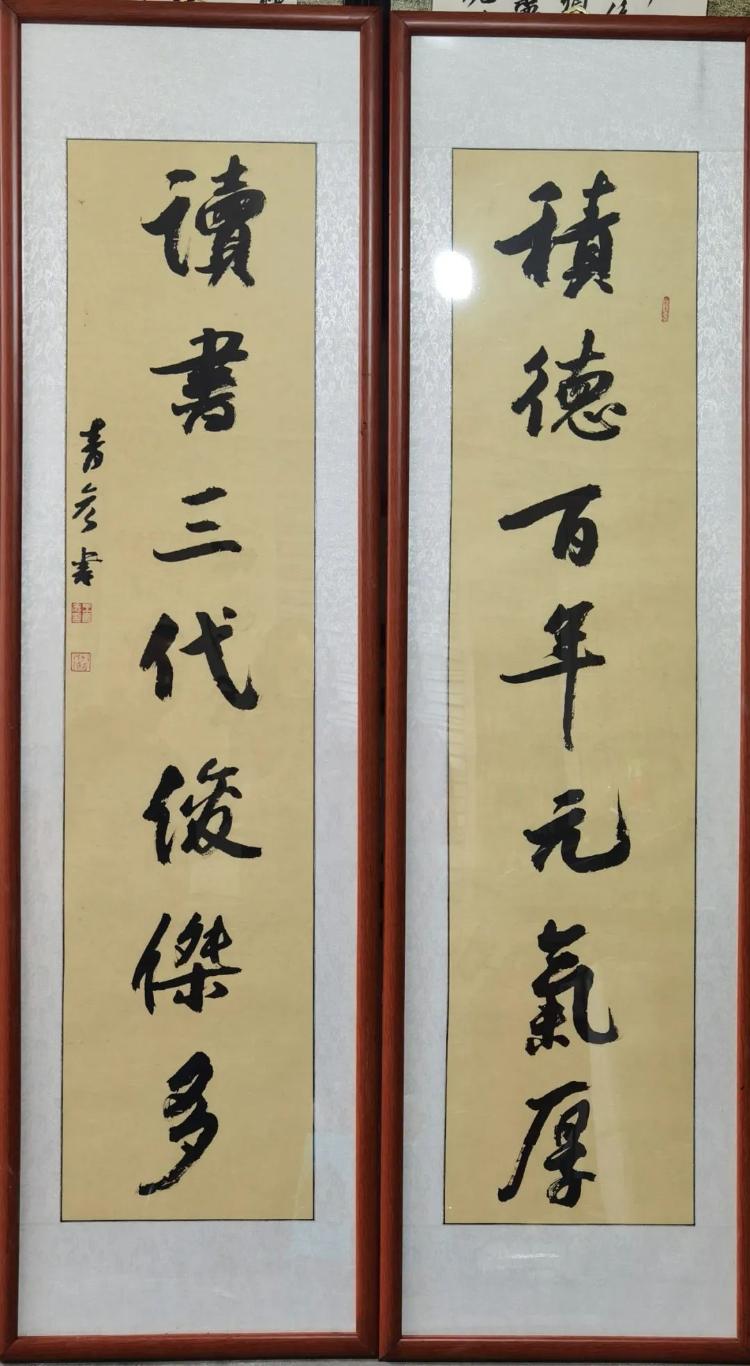 積德百年元氣厚
讀書三代俊傑多
青彥書